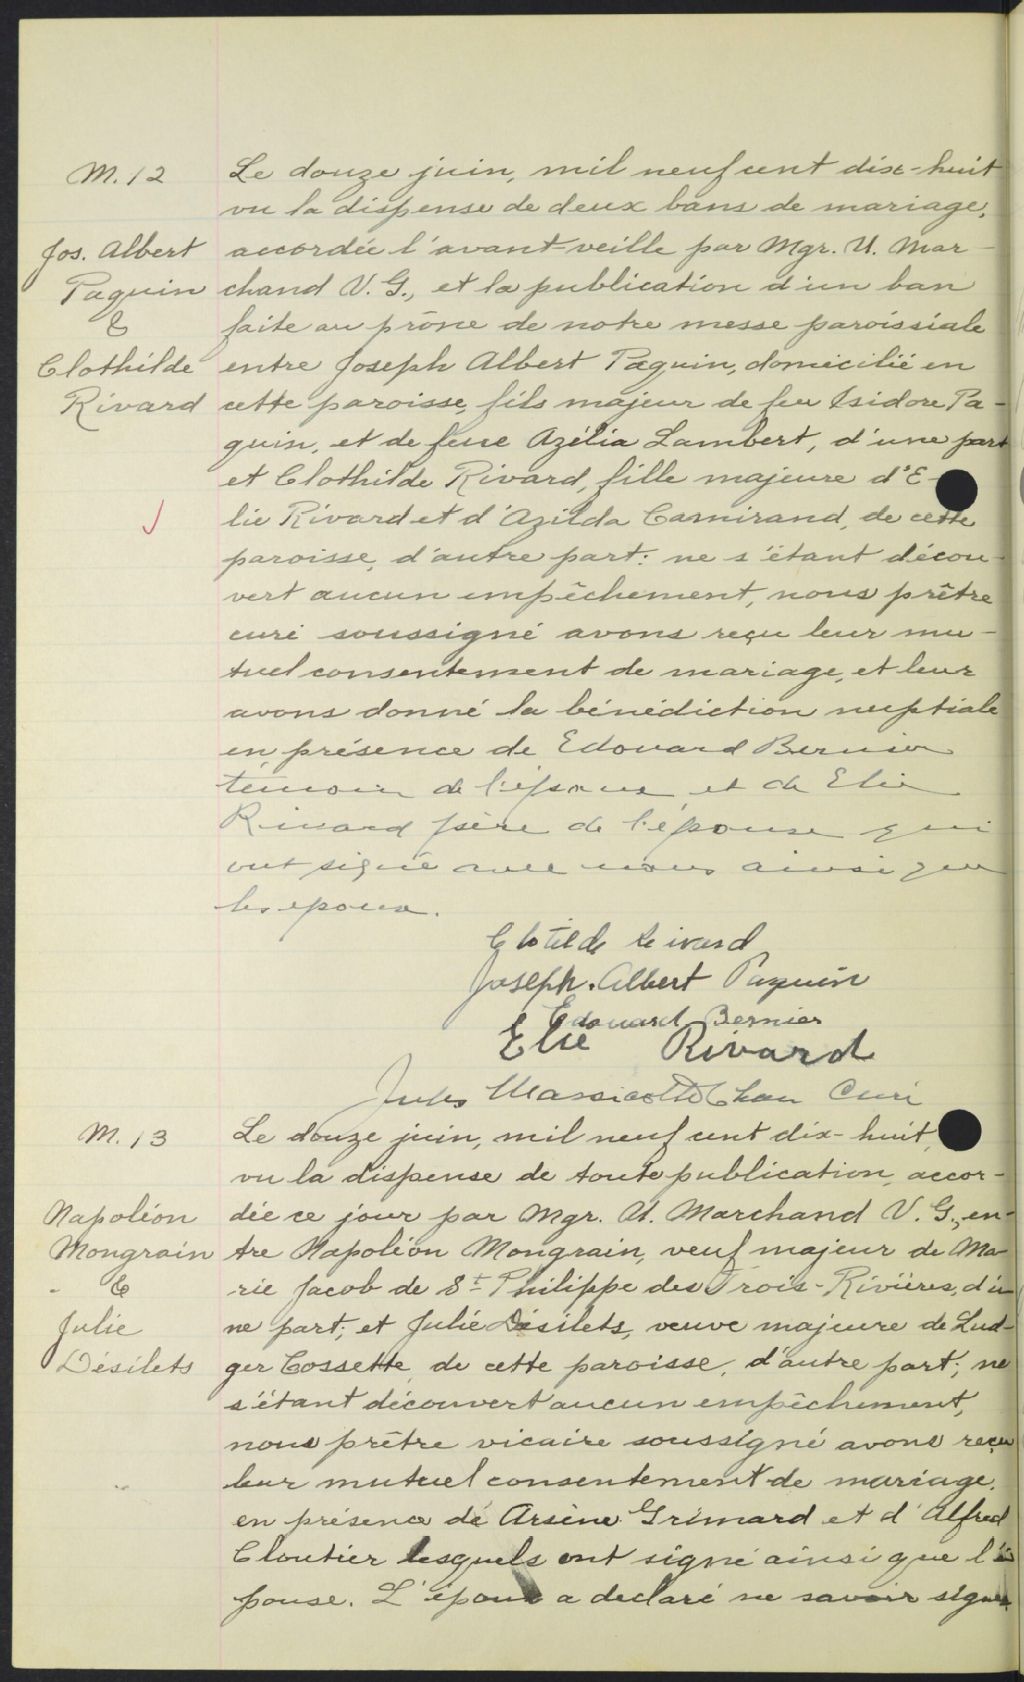 M. 12
Jos. Albert
Paquin
&
Clothilde
Rivard
Le douze juin, mil neuf cent dix-huit
vu la dispense de deux bans de mariage,
accordée l'avant-veille par Mgr. U. Mar-
chand V. G., et la publication d'un ban
faite au prône de notre messe paroissiale
entre Joseph Albert Paquin, domicilié en
cette paroisse, fils majeur de feu Isidore Pa-
quin, et de feue Azélia Lambert, d'une part
et Clothilde Rivard, fille majeure d'E-
lie Rivard et d'Azilda Camirand, de cette
paroisse, d'autre part: ne s'étant décou-
vert aucun empêchement, nous prêtre
curé soussigné avons reçu leur mu-
tuel consentement de mariage, et leur
avons donné la bénédiction nuptiale
en présence de Edouard Bernier
témoin de l'époux et de Elie
Rivard père de l'épouse qui
ont signé avec nous ainsi que
les époux.
Clotilde Rivard
Joseph. Albert Paquin
Edouard Bernier
Elie Rivard
Jules Massicotte Chan Curé
M. 13
Napoléon
Mongrain
&
Julie
Désilets
Le douze juin, mil neuf cent dix-huit,
vu la dispense de toute publication, accor-
dée ce jour par Mgr. U. Marchand V. G., en-
tre Napoléon Mongrain, veuf majeur de Ma-
rie Jacob de St Philippe des Trois-Rivières, d'u-
ne part; et Julie Désilets, veuve majeure de Lud-
ger Cossette, de cette paroisse, d'autre part; ne
s'étant découvert aucun empêchement,
nous prêtre vicaire soussigné avons reçu
leur mutuel consentement de mariage.
en présence de Arsène Grimard et d'Alfred
Cloutier lesquels ont signé ainsi que l'é-
pouse. L'époux a declaré ne savoir signer